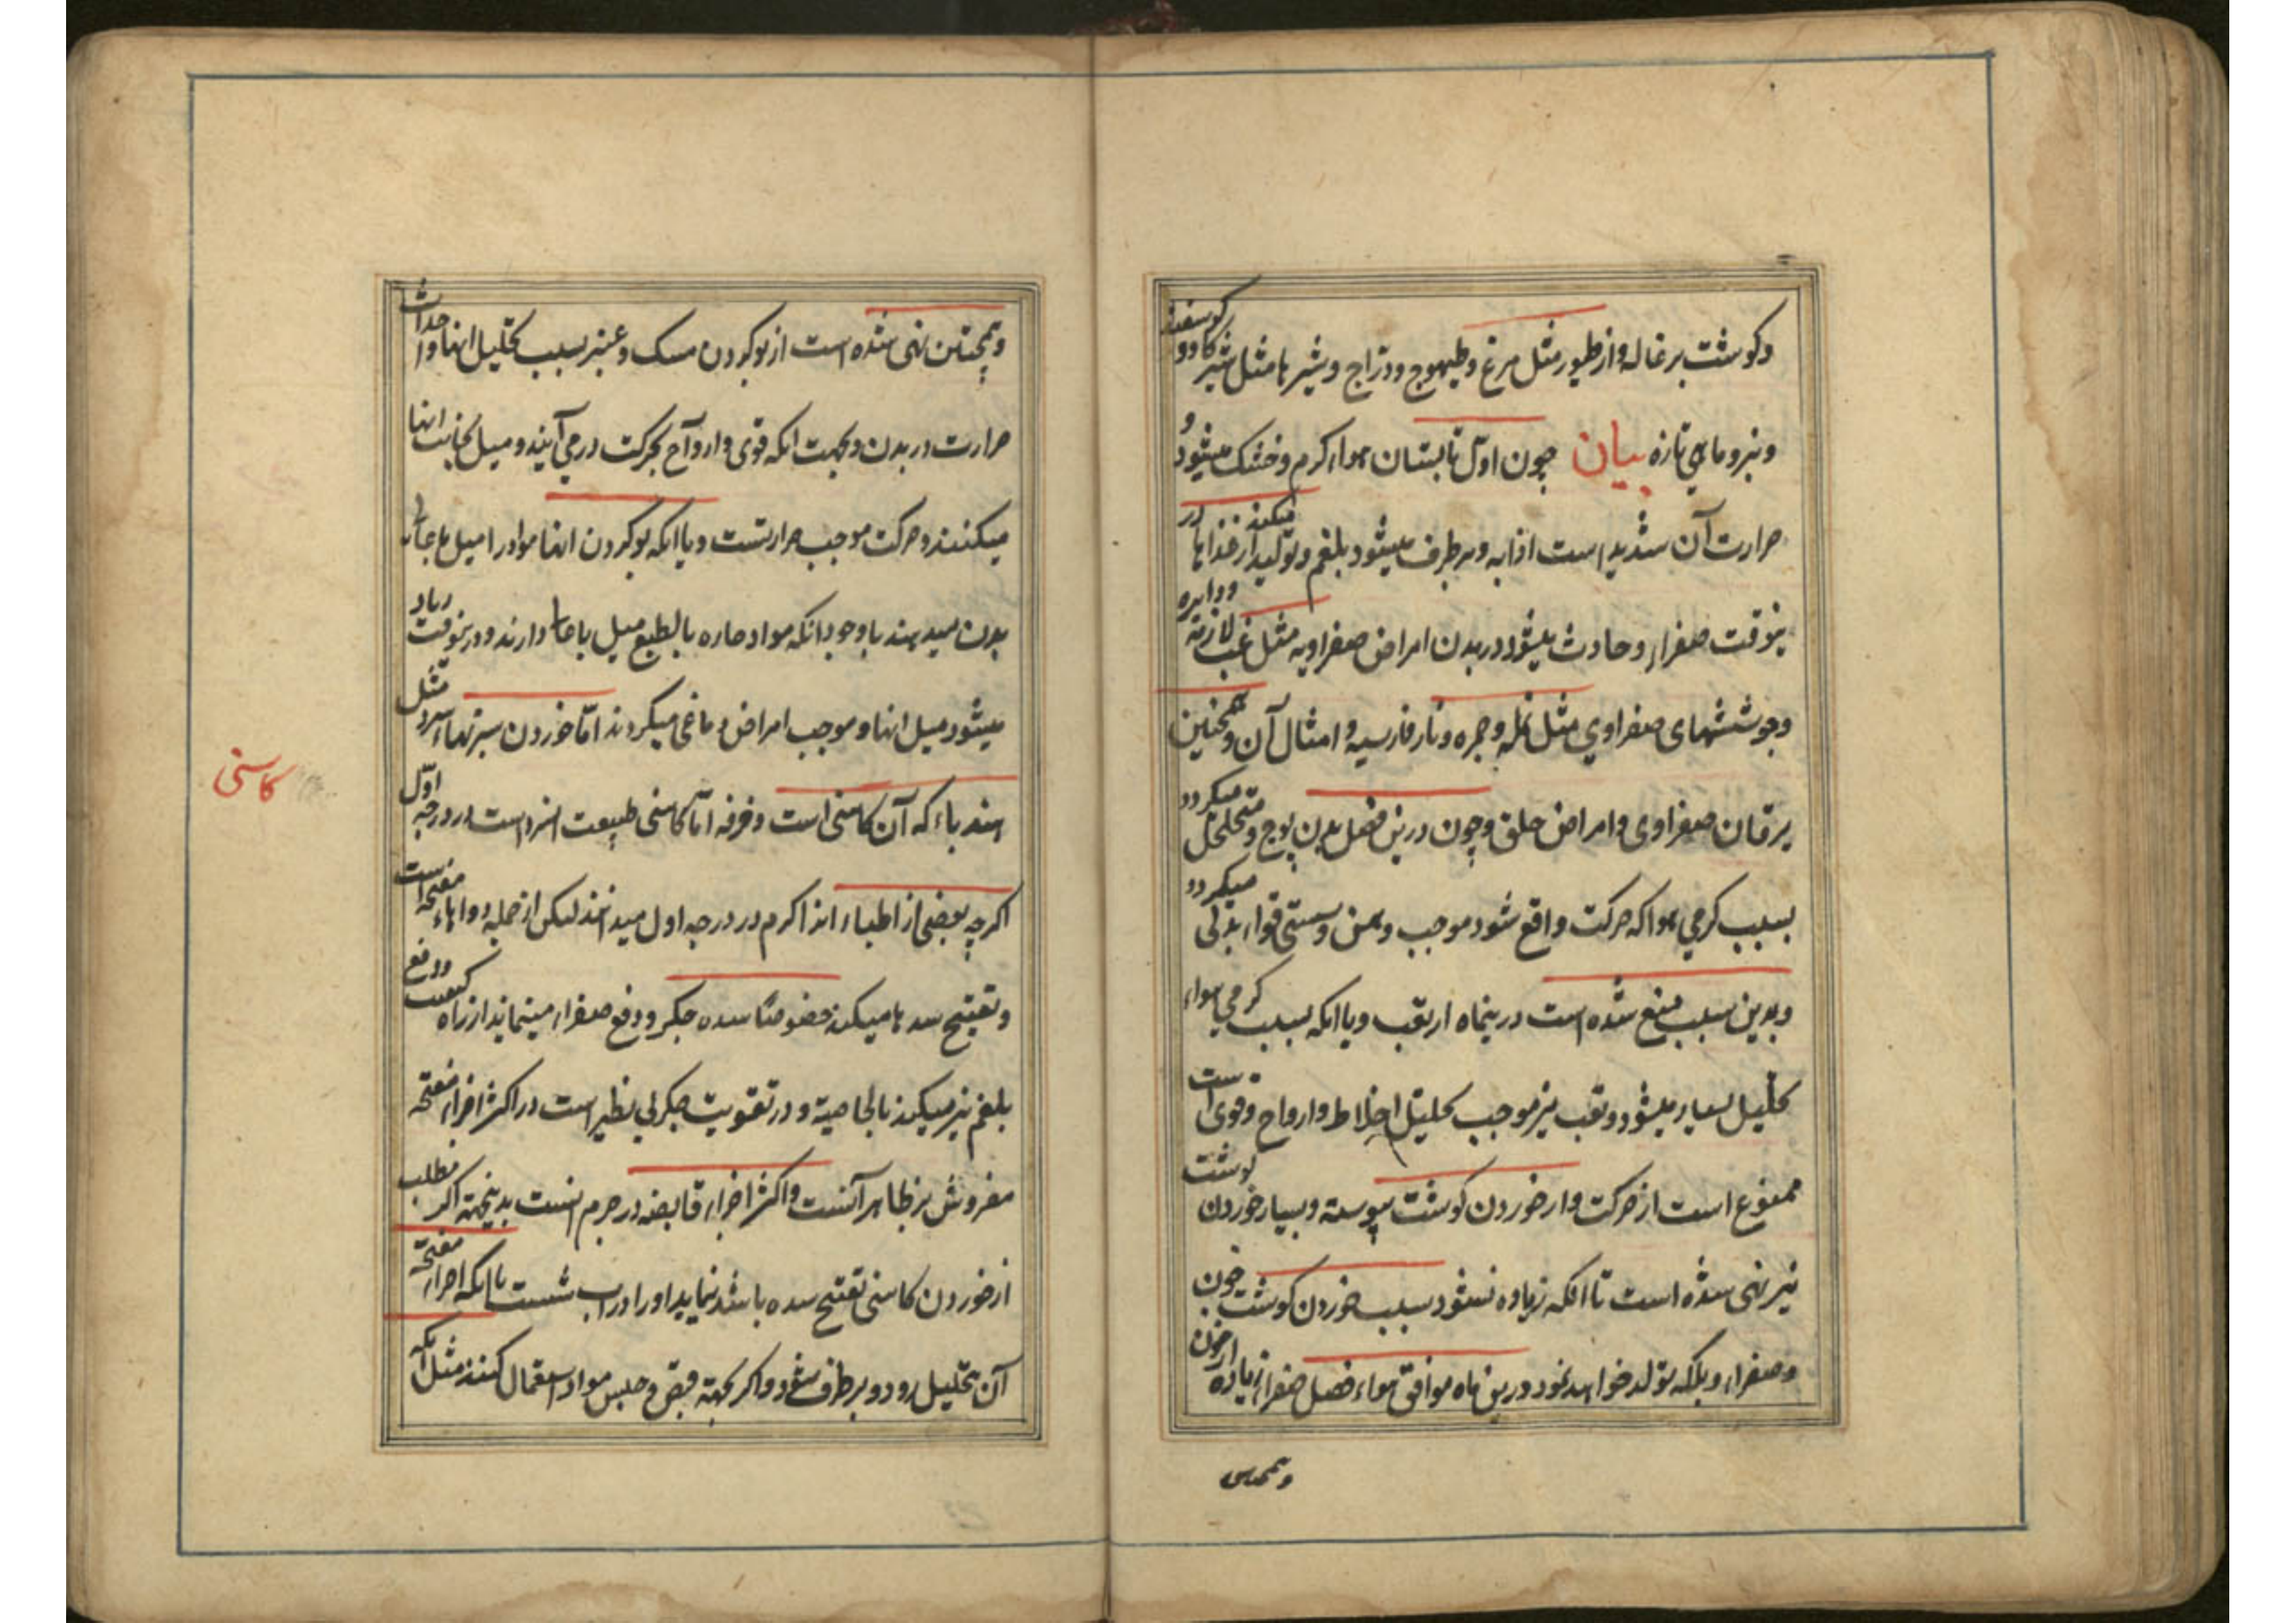 وکوشت بزغاله واز طیور مثل مرغ وطیهوج ودرّاج وشیرها مثل شیر کاو وکوسفند
وپنیر وماهی تازه بیان چون اوّل تابستان هواء کرم وخشک میشود و
حرارت آن شدید است اذابه وبرطرف میشود بلغم وتولید میکند از غذاها در
ینوقت صفراء وحادث میشود در بدن امراض صفراویه مثل غب لازمه ودایره
وجوششهای صفراوی مثل نمله وجمره ونار فارسیه وامثال آن وهمچنین
یرقان صفراوی وامراض حلق وچون درین فصل بدن پوچ ومتخلخل میکردد
بسبب کرمی هوا که حرکت واقع شود موجب وهن وسستی قواء بدنی میکردد
وبدین سبب منع شده است درینماه از تعب ویا انکه بسبب کرمی هواء
تحلیل بسیار میشود وتعب نیز موجب تحلیل اخلاط وارواح وقوی است
ممنوع است از حرکت واز خوردن کوشت پیوسته وبسیار خوردن کوشت
نیز نهی شده است تا انکه زیاده نشود بسبب خوردن کوشت خون
وصفراء وبلکه تولد خواهد نمود درین ماه موافق هواء فصل صفراء زیاده از خون
وهمچنین
وهمچنین نهی شده است از بو کردن مسک وعنبر بسبب تحلیل انها واحداث
حرارت در بدن وبجهت انکه قوی وارواح بحرکت درمی آیند ومیل بجانب انها
میکنند وحرکت موجب حرارتست ویا انکه بو کردن انها مواد را میل باعالی
بدن میدهند با وجود انکه مواد حاره بالطبع میل باعالی دارند ودرینوقت زیاد
میشود میل انها وموجب امراض دماغی میکردند امّا خوردن سبزیهاء سرد مثل
هندباء که آن کاسنی است وخرفه امّا کاسنی طبیعت انسرد است در درجه اوّل
کاسنی
اکرچه بعضی از اطباء انرا کرم در درجه اول میدانند لیکن از جمله دواهاء مفتحه است
وتفتیح سدها میکند خصوصًا سده جکر ودفع صفراء مینماید از راه کیفیت ودفع
بلغم نیز میکند بالخاصیة ودر تقویت جکر بی نظیر است در اکثر اجزاء مفتحه
مفروش بر ظاهر آنست واکثر اجزاء قابضه در جرم انست بدینجهة اکر مطلب
از خوردن کاسنی تفتیح سده باشد نماید اورا در اب شست با انکه اجزاء مفتحه
آن بتحلیل رود وبرطرف شود واکر بجهة قبض وحبس مواد استعمال کنند مثل انکه